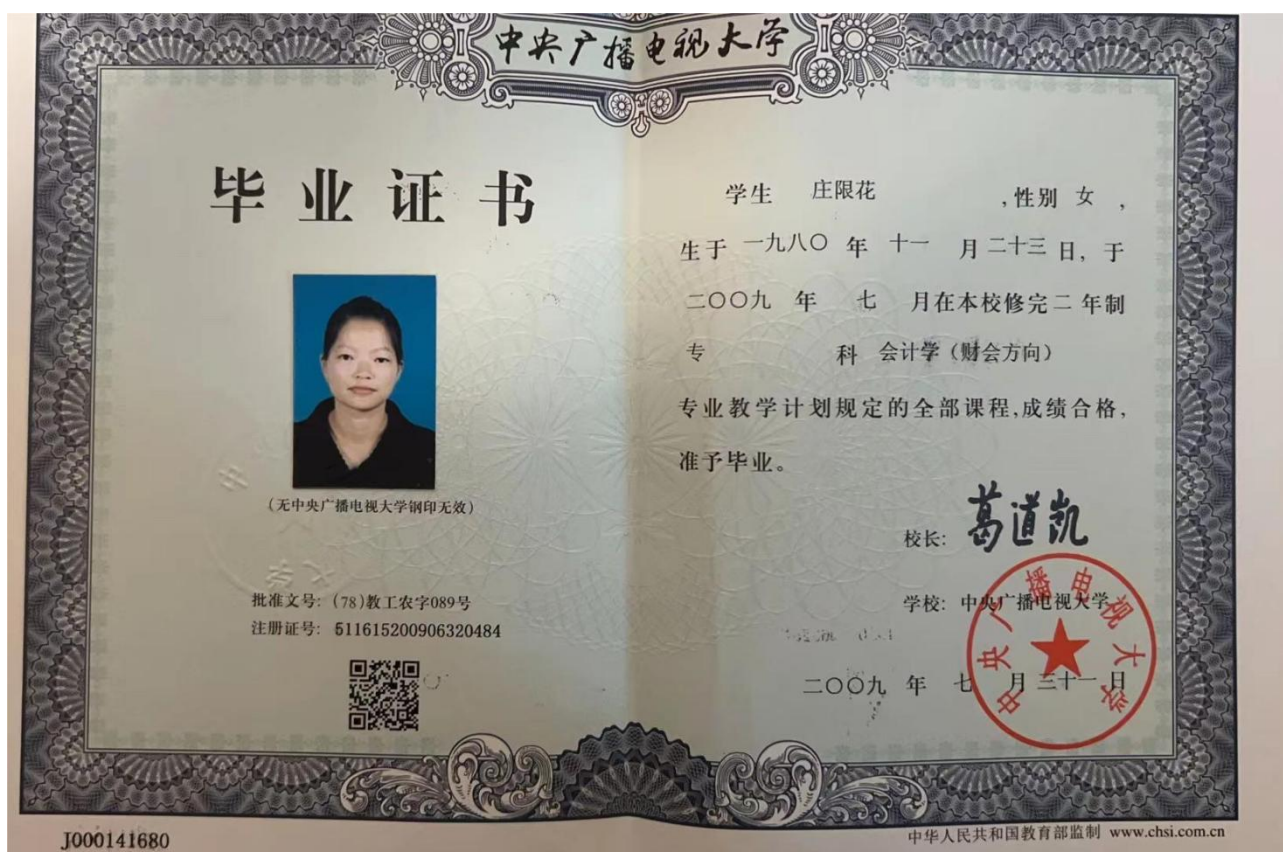 中央广播电视大学
毕业证书
(无中央广播电视大学钢印无效)
批准文号: (78)教工农字089号
注册证号: 511615200906320484
学生 庄限花 ,性别 女 ,
生于 一九八〇 年 十一 月 二十三 日, 于
二〇〇九 年 七 月在本校修完二 年制
专 科 会计学(财会方向)
专业教学计划规定的全部课程,成绩合格,
准予毕业。
校长: 葛道凯
学校: 中央广播电视大学
二〇〇九 年 七 月 三十一 日
中央广播电视大学
J000141680
中华人民共和国教育部监制 www.chsi.com.cn